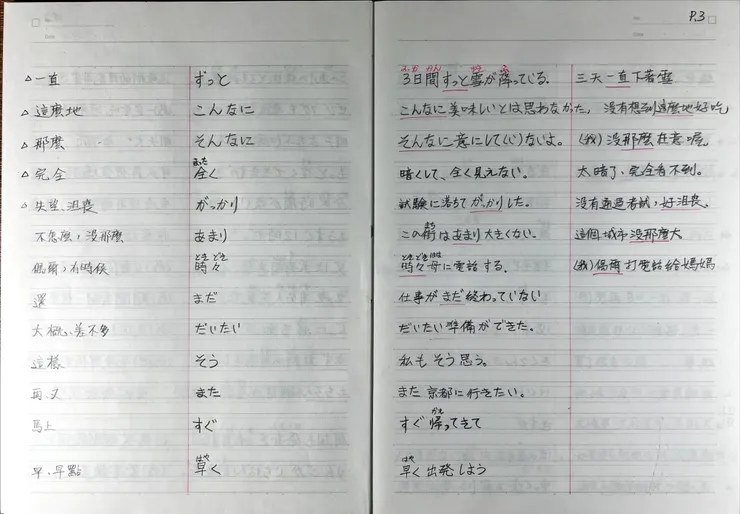 P.3
△一直 ずっと
△這麼地 こんなに
△那麼 そんなに
△完全 全く
△失望、沮喪 がっかり
不怎麼，沒那麼 あまり
偶爾，有時候 時々
ときどき
還 まだ
大概、差不多 だいたい
這樣 そう
再、又 また
馬上 すぐ
はや
早、早點 早く
3日間ずっと雪が降っている。 三天一直下著雪
こんなに美味しいとは思わなかった。 沒有想到這麼地好吃
そんなに意にして(い)ないよ。 (我)沒那麼在意喔
暗くして、全く見えない。 太暗了、完全看不到。
試験に落ちてがっかりした。 沒有通過考試，好沮喪。
まち
この街はあまり大きくない。 這個城市沒那麼大
ときどき はは
時々母に電話する。 (我)偶爾打電話給媽媽
仕事がまだ終わっていない
だいたい準備ができた。
私もそう思う。
また京都に行きたい。
かえ
すぐ帰ってきて
はや
早く出発しよう